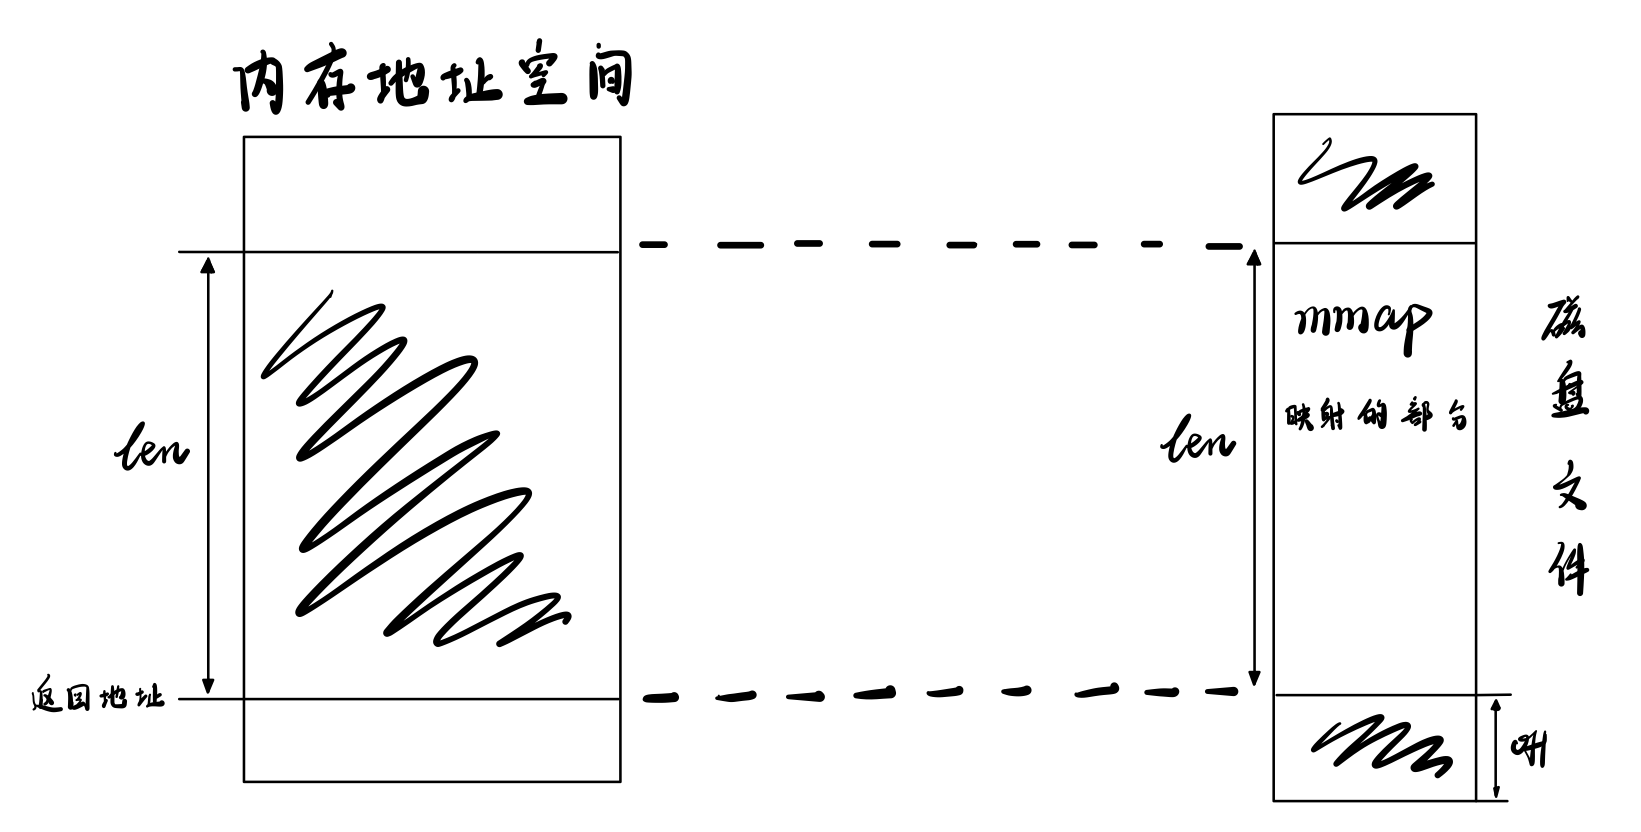 内存地址空间
len
返回地址
len
mmap
映射的部分
磁盘文件
off